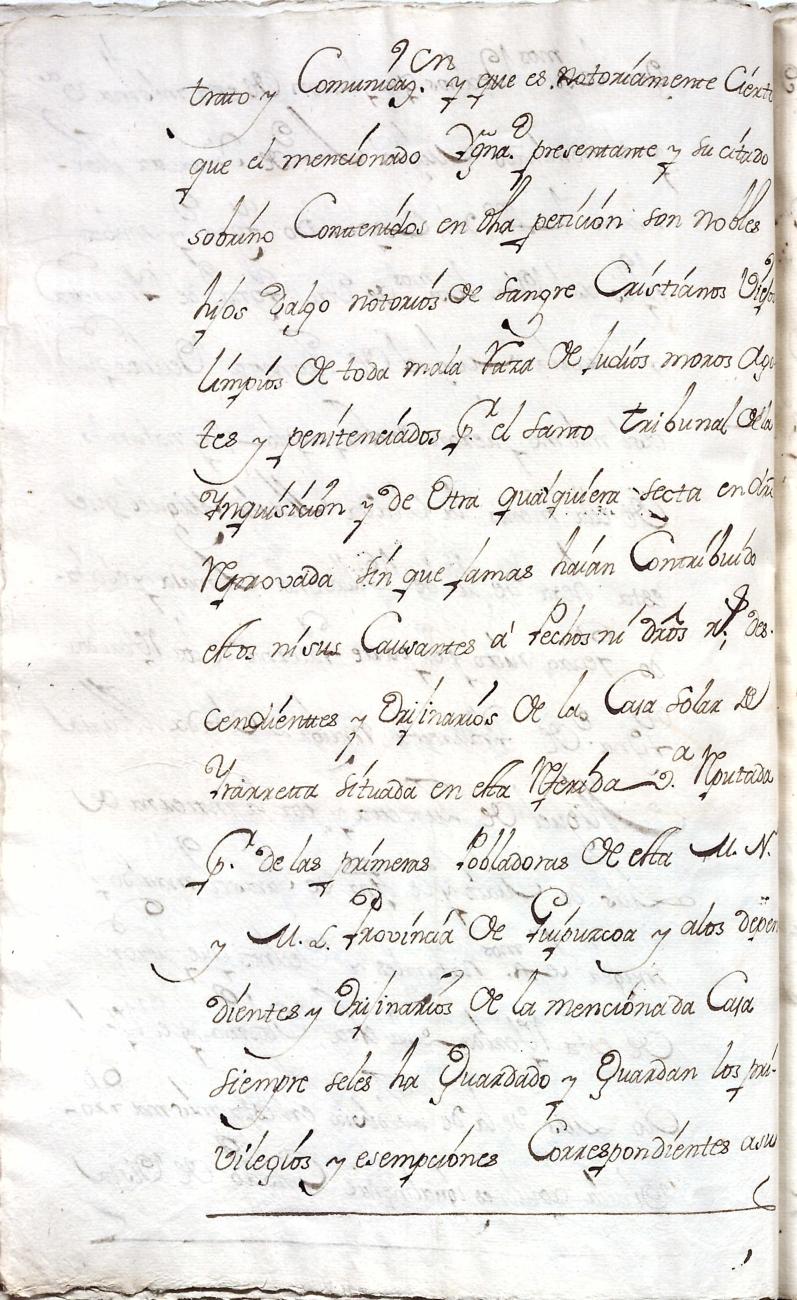 trato y Comunicaz.cn y que es notoriamente Cierto
que el mencionado Ygña.o presentante y su citado
sobrino Contenidos en dha peticion son nobles
hijos Dalgo notorios de sangre Cristianos Viejos
limpios de toda mala raza de Judios moros Ago
tes y penitenciados p.r el santo tribunal de la
Ynquisicion y de otra qualquiera secta en dro
Reprovada sin que Jamas haian Contribuido
ellos ni sus Causantes á Pechos ni dros r.s des-
cendientes y Orijinarios de la Casa solar de
Yrarreta situada en esta Referida v.a Reputada
p.r de las primeras Pobladoras de esta M. N.
y M. L. Provincia de Guipuzcoa y alos depen
dientes y Orijinarios de la mencionada Casa
siempre seles ha Guardado y Guardan los pri-
vilegios y esempciones Correspondientes asu